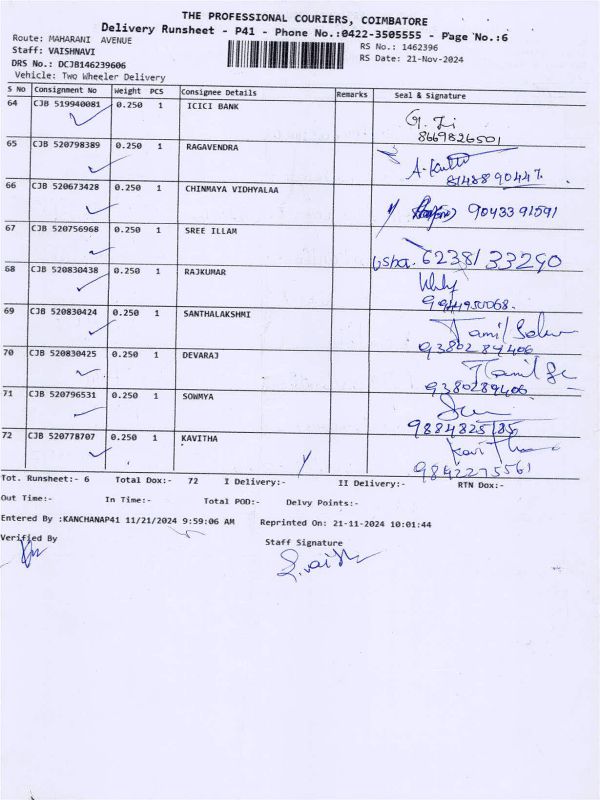 THE PROFESSIONAL COURIERS, COIMBATORE
Delivery Runsheet - P41 - Phone No.:0422-3505555 - Page No.:6
Route: MAHARANI AVENUE
RS No.: 1462396
Staff: VAISHNAVI
RS Date: 21-Nov-2024
DRS No.: DCJB146239606
Vehicle: Two Wheeler Delivery
S No Consignment No Weight PCS Consignee Details Remarks Seal & Signature
64 CJB 519940081 0.250 1 ICICI BANK
8669826501
65 CJB 520798389 0.250 1 RAGAVENDRA
66 CJB 520673428 0.250 1 CHINMAYA VIDHYALAA
9043391591
67 CJB 520756968 0.250 1 SREE ILLAM
Usha. 6238133290
68 CJB 520830438 0.250 1 RAJKUMAR
69 CJB 520830424 0.250 1 SANTHALAKSHMI
9380289406
70 CJB 520830425 0.250 1 DEVARAJ
9380289406
71 CJB 520796531 0.250 1 SOWMYA
72 CJB 520778707 0.250 1 KAVITHA
9842275561
Tot. Runsheet:- 6 Total Dox:- 72 I Delivery:- II Delivery:- RTN Dox:-
Out Time:- In Time:- Total POD:- Delvy Points:-
Entered By :KANCHANAP41 11/21/2024 9:59:06 AM Reprinted On: 21-11-2024 10:01:44
Verified By
Staff Signature